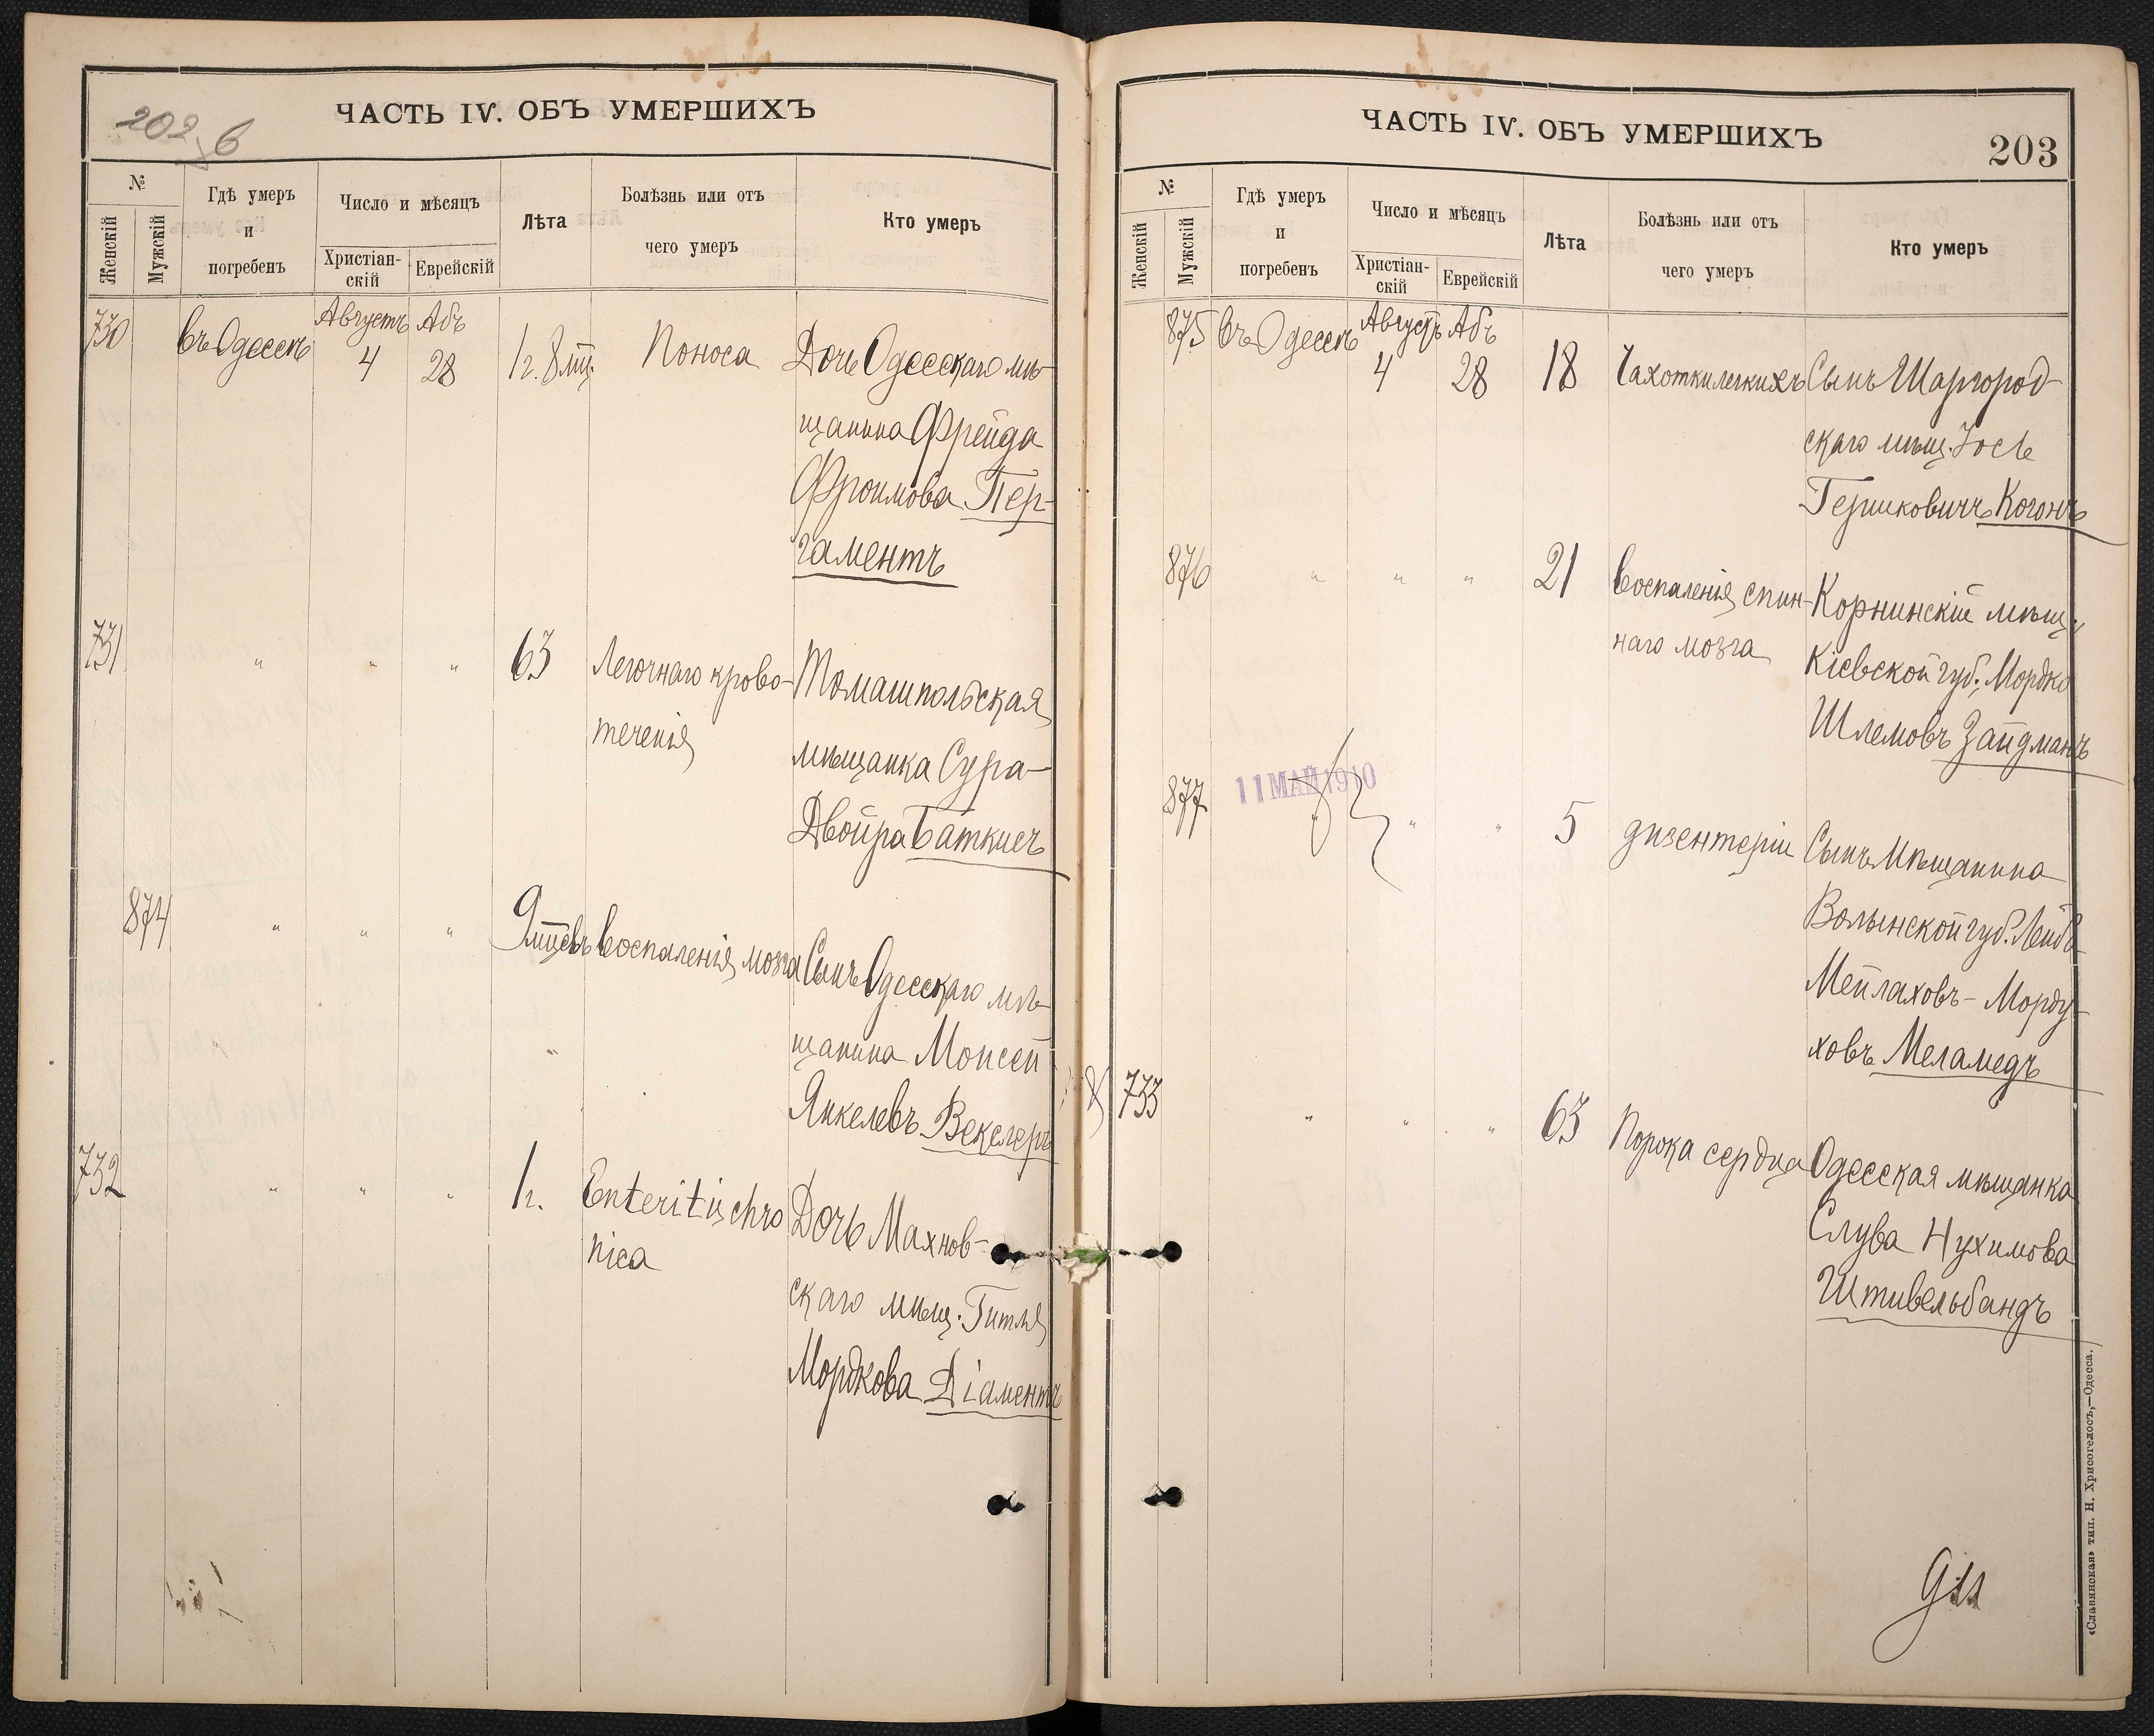 202 б
ЧАСТЬ IV. ОБЪ УМЕРШИХЪ
№
Женскій
Мужскій
Гдѣ умеръ
и
погребенъ
Число и мѣсяцъ
Христіан-
скій
Еврейскій
Лѣта
Болѣзнь или отъ
чего умеръ
Кто умеръ
730 Въ Одессѣ Августъ 4 Абъ 28 1 г. 8 мц. Поноса Дочь Одесскаго мѣ-
щанина Фрейда
Фроимова Пер-
гаментъ
731 " " " 63 Легочнаго крово- Томашпольская
теченія мѣщанка Сура-
Двойра Баткисъ
874 " " " 9 мцевъ Воспаленія мозга Сынъ Одесскаго мѣ-
щанина Моисей
Янкелевъ Векслеръ
732 " " " 1 г. Enteritis chro Дочь Махнов-
nica скаго мѣщ. Гитля
Мордкова Діаментъ
ЧАСТЬ IV. ОБЪ УМЕРШИХЪ
203
№
Женскій
Мужскій
Гдѣ умеръ
и
погребенъ
Число и мѣсяцъ
Христіан-
скій
Еврейскій
Лѣта
Болѣзнь или отъ
чего умеръ
Кто умеръ
875 Въ Одессѣ Августъ 4 Абъ 28 18 Чахотки легкихъ Сынъ Шаргород-
скаго мѣщ. Іось
Гершковичъ Когонъ
876 " " " 21 Воспаленія спин- Корнинскій мѣщ.
наго мозга Кіевской губ. Мордко
Шлемовъ Зайдманъ
877 11 МАЙ 1910 " " " 5 дизентеріи Сынъ Мѣщанина
Волынской губ. Лейба
Мейлаховъ-Морду-
ховъ Меламедъ
733 " " " 63 Порока сердца Одесская мѣщанка
Слува Нухимова
Штивельбандъ
«Славянская» тип. Н. Хрисогелосъ,—Одесса.